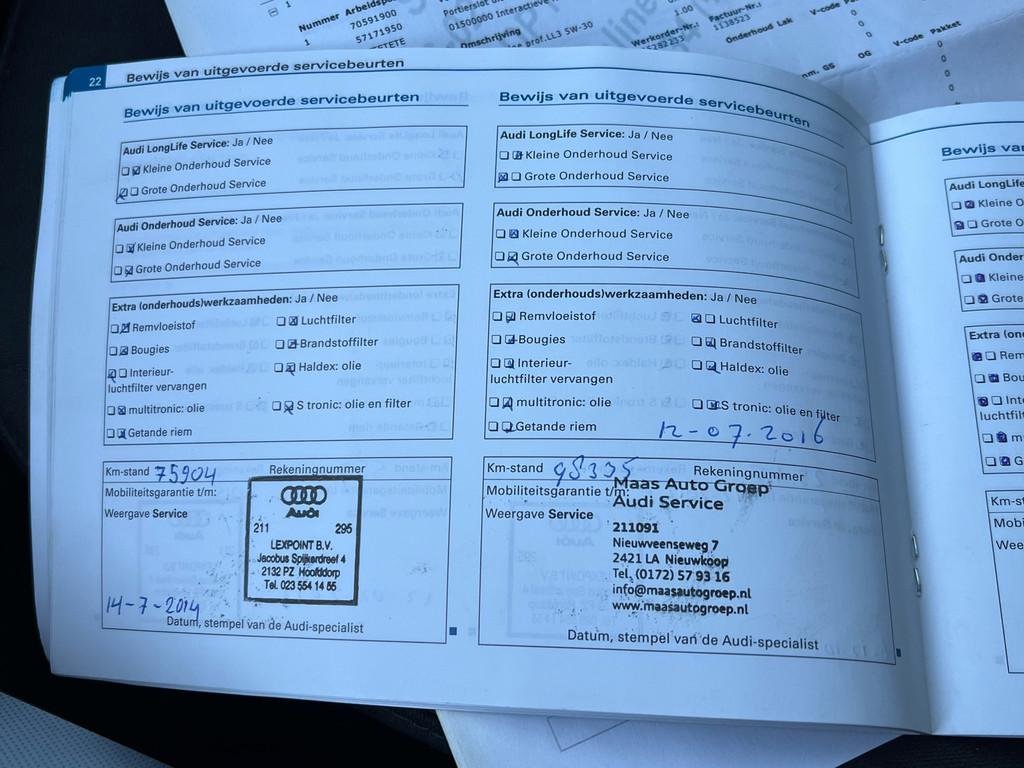 Nummer Arbeidsp
1
1 70591900
57171950
Portierslot
01500000 Interactieve
Omschrijving
prof.LL3 5W-30
1.00
Werkorder-Nr.: Factuur-Nr.:
1138523
Onderhoud Lak V-code Pakket
0
0
nm. GS OG V-code Pakket
0
0
0
0
22 Bewijs van uitgevoerde servicebeurten
Bewijs van uitgevoerde servicebeurten
Audi LongLife Service: Ja / Nee
Kleine Onderhoud Service
Grote Onderhoud Service
Audi Onderhoud Service: Ja / Nee
Kleine Onderhoud Service
Grote Onderhoud Service
Extra (onderhouds)werkzaamheden: Ja / Nee
Remvloeistof Luchtfilter
Bougies Brandstoffilter
Interieur- Haldex: olie
luchtfilter vervangen
multitronic: olie S tronic: olie en filter
Getande riem
Km-stand 75904 Rekeningnummer
Mobiliteitsgarantie t/m:
Weergave Service
Audi
211 295
LEXPOINT B.V.
Jacobus Spijkerdreef 4
2132 PZ Hoofddorp
Tel. 023 554 14 55
14-7-2014
Datum, stempel van de Audi-specialist
Bewijs van uitgevoerde servicebeurten
Audi LongLife Service: Ja / Nee
Kleine Onderhoud Service
Grote Onderhoud Service
Audi Onderhoud Service: Ja / Nee
Kleine Onderhoud Service
Grote Onderhoud Service
Extra (onderhouds)werkzaamheden: Ja / Nee
Remvloeistof Luchtfilter
Bougies Brandstoffilter
Interieur- Haldex: olie
luchtfilter vervangen
multitronic: olie S tronic: olie en filter
Getande riem 12-07-2016
Km-stand 98335 Rekeningnummer
Mobiliteitsgarantie t/m: Maas Auto Groep
Audi Service
Weergave Service
211091
Nieuwveenseweg 7
2421 LA Nieuwkoop
Tel. (0172) 57 93 16
info@maasautogroep.nl
www.maasautogroep.nl
Datum, stempel van de Audi-specialist
Bewijs va
Audi LongLife
Kleine O
Grote O
Audi Onder
Kleine
Grote
Extra (on
Rem
Bou
Inte
luchtfil
m
G
Km-s
Mobi
Wee